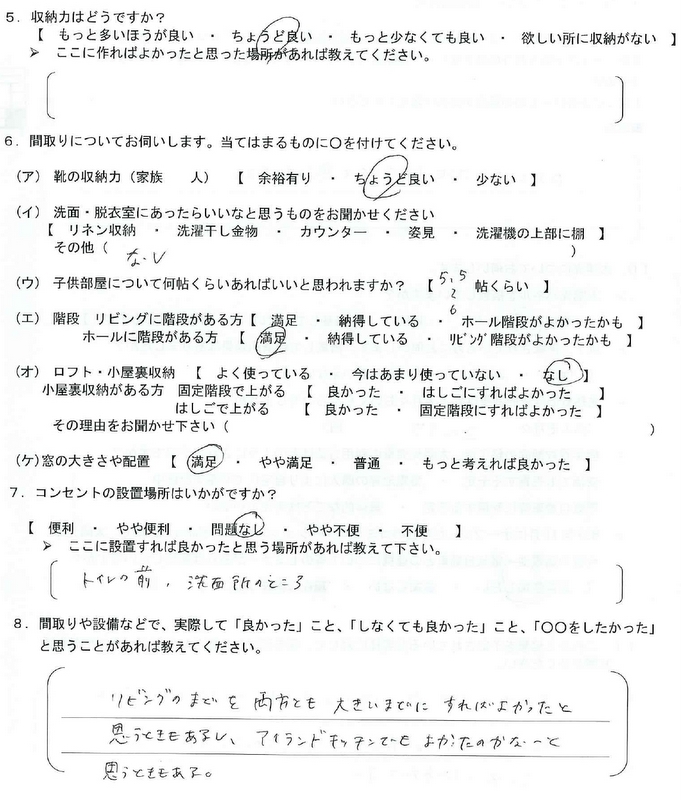 ５．収納力はどうですか？
【　もっと多いほうが良い　・　ちょうど良い　・　もっと少なくても良い　・　欲しい所に収納がない　】
➢　ここに作ればよかったと思った場所があれば教えてください。
６．間取りについてお伺いします。当てはまるものに〇を付けてください。
（ア）　靴の収納力（家族　　人）　【　余裕有り　・　ちょうど良い　・　少ない　】
（イ）　洗面・脱衣室にあったらいいなと思うものをお聞かせください
【　リネン収納　・　洗濯干し金物　・　カウンター　・　姿見　・　洗濯機の上部に棚　】
その他（　ない　）
（ウ）　子供部屋について何帖くらいあればいいと思われますか？　【　5,5 〜 6　帖くらい　】
（エ）　階段　リビングに階段がある方【　満足　・　納得している　・　ホール階段がよかったかも　】
ホールに階段がある方　【　満足　・　納得している　・　リビング階段がよかったかも　】
（オ）　ロフト・小屋裏収納　【　よく使っている　・　今はあまり使っていない　・　なし　】
小屋裏収納がある方　固定階段で上がる　【　良かった　・　はしごにすればよかった　】
はしごで上がる　【　良かった　・　固定階段にすればよかった　】
その理由をお聞かせ下さい（　）
（ケ）窓の大きさや配置　【　満足　・　やや満足　・　普通　・　もっと考えれば良かった　】
７．コンセントの設置場所はいかがですか？
【　便利　・　やや便利　・　問題なし　・　やや不便　・　不便　】
➢　ここに設置すれば良かったと思う場所があれば教えて下さい。
トイレの前，洗面所のところ
８．間取りや設備などで、実際して「良かった」こと、「しなくても良かった」こと、「〇〇をしたかった」
と思うことがあれば教えてください。
リビングのまどを両方とも大きいまどにすればよかったと
思うときもあるし、アイランドキッチンでもよかたのかな〜と
思うときもある。